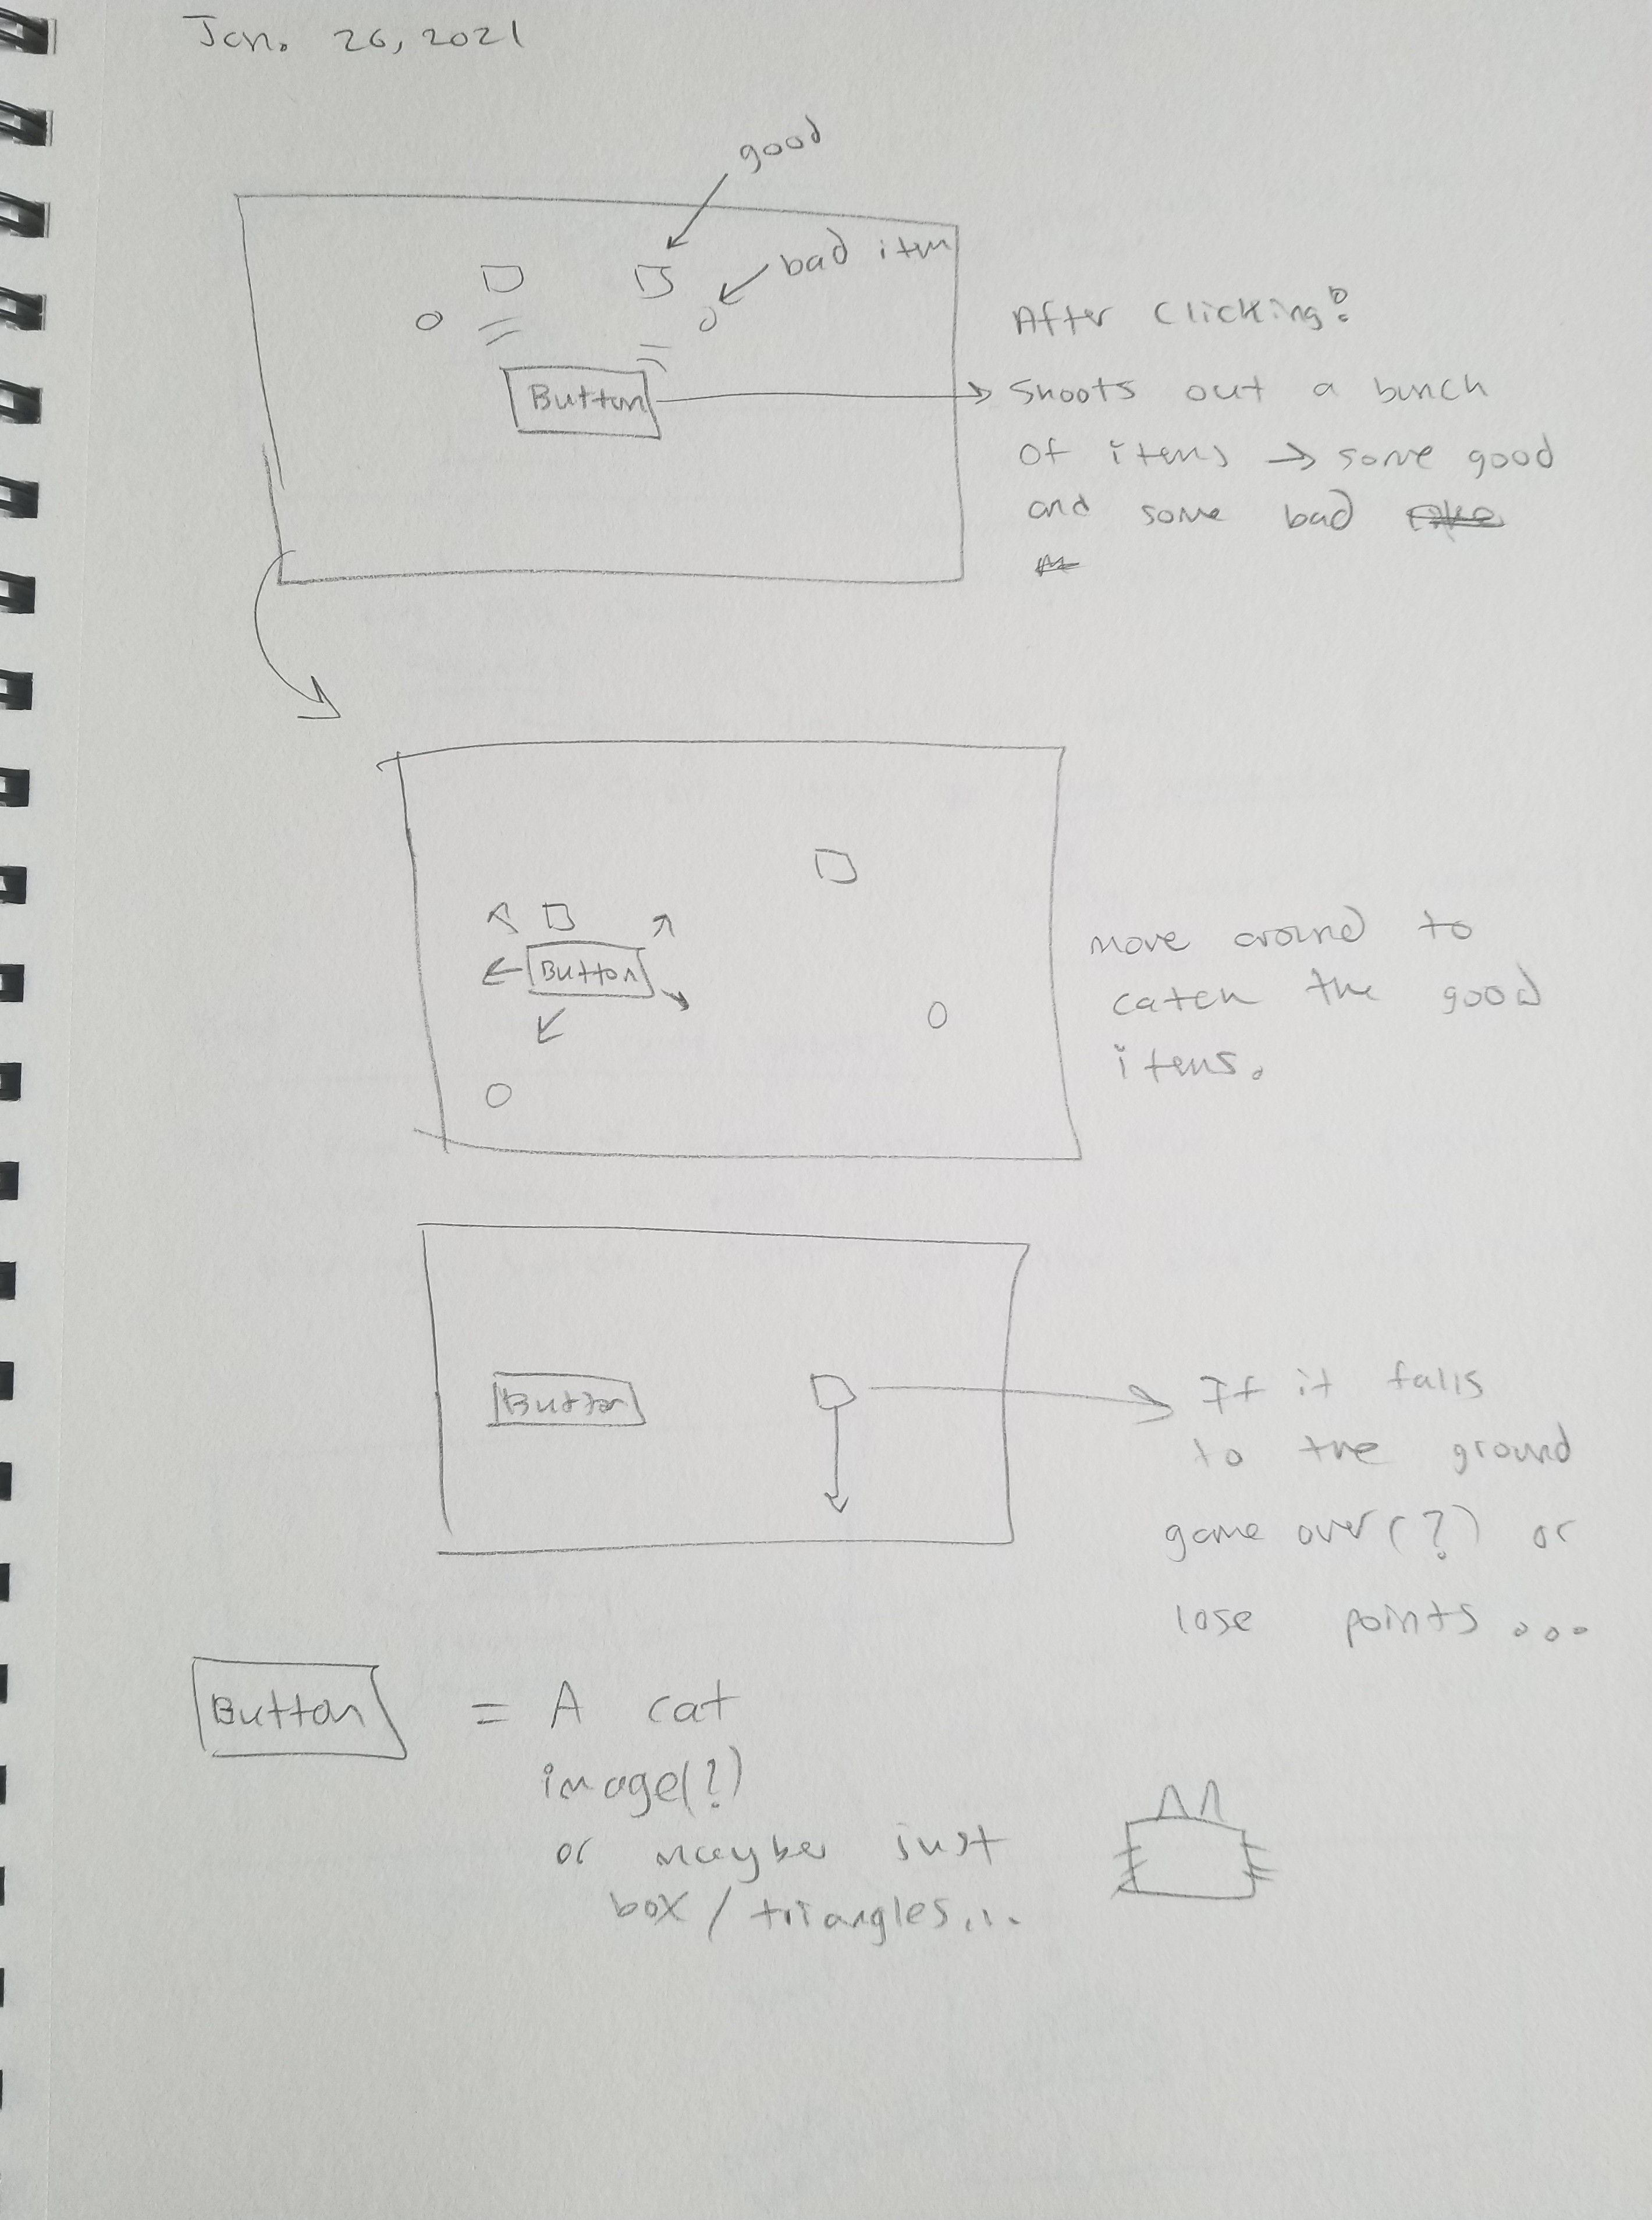 Jan. 26, 2021
good
bad item
After Clicking:
Button
Shoots out a bunch
of items → some good
and some bad
Move around to
catch the good
items.
Button
Button
If it falls
to the ground
game over(?) or
lose points...
Button = A cat
image(?)
or maybe just
box / triangles...